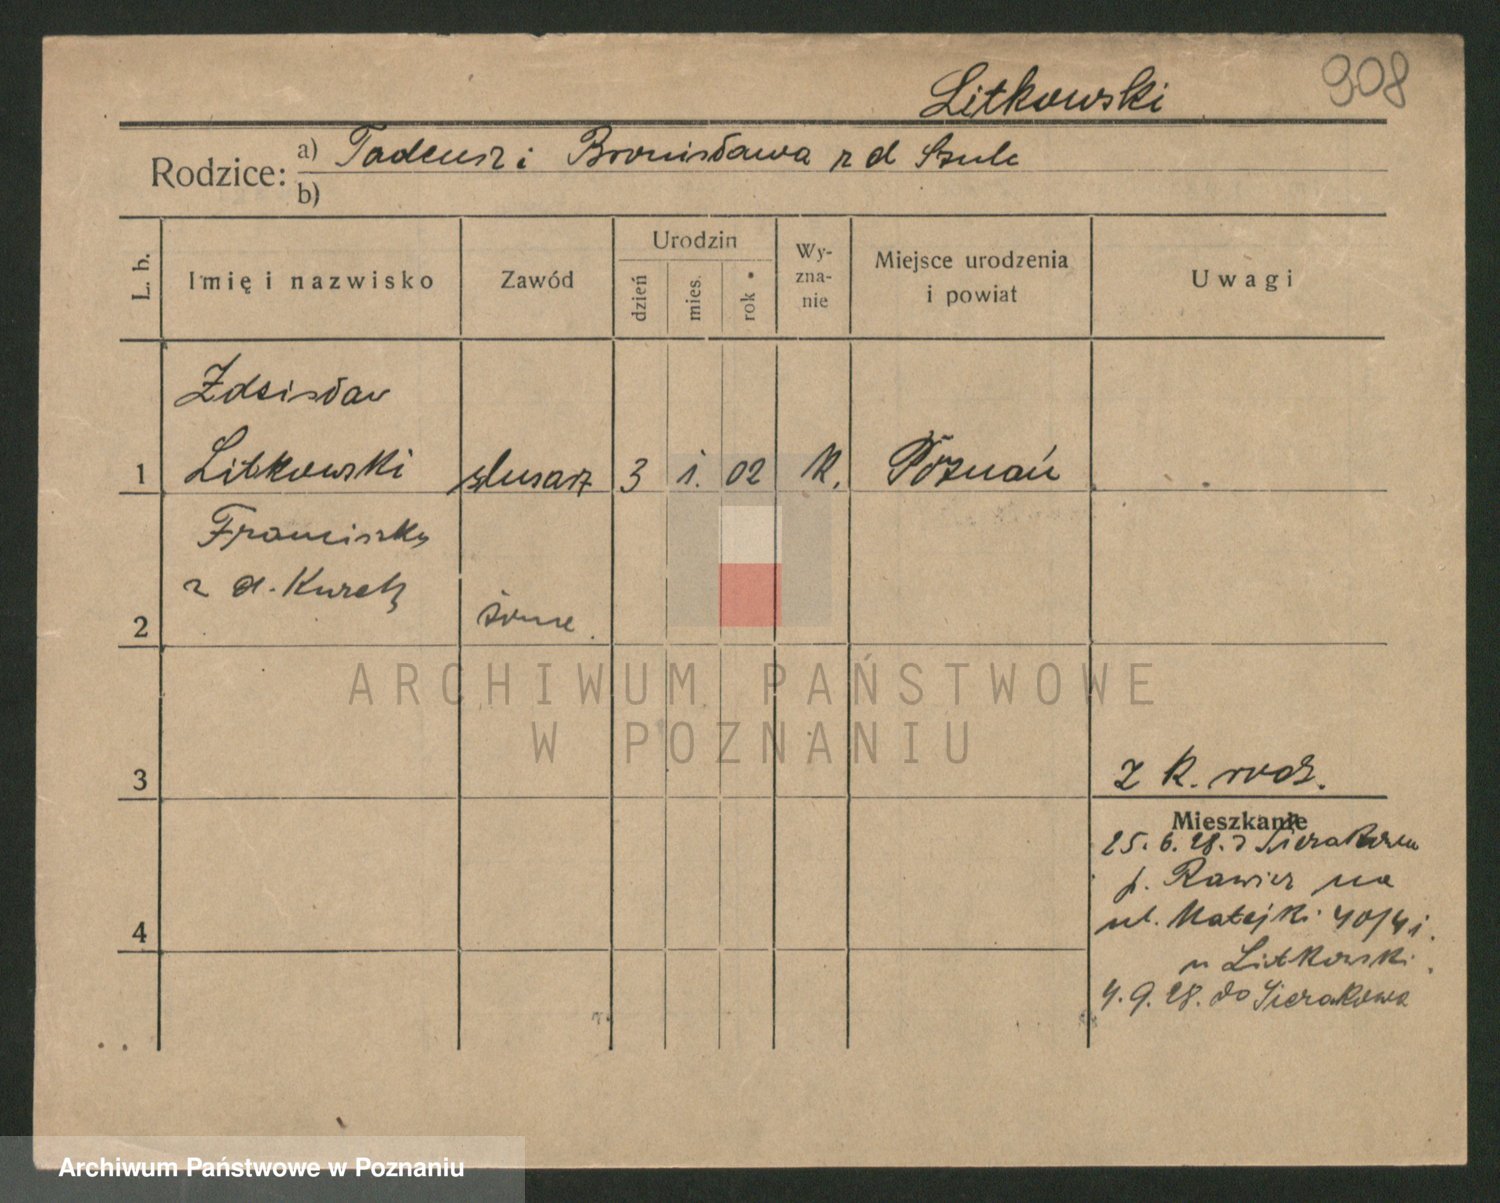 Litkowski
908
Rodzice:
a) Tadeusz i Bronisława z d Szulc
b)
L. b.
Imię i nazwisko
Zawód
Urodzin
dzień
mies.
rok
Wy-
zna-
nie
Miejsce urodzenia
i powiat
Uwagi
Zdzisław
1 Litkowski ślusarz 3 1. 02 K. Poznań
Franciszka
z d.
2 żona.
ARCHIWUM PAŃSTWOWE
W POZNANIU
3 z k. rodz.
Mieszkanie
25. 6. 28. z Sierakowa
p. Rawicz na
4 ul. Matejki 40/41.
u Litkowski.
4. 9. 28. do Sierakowa
Archiwum Państwowe w Poznaniu